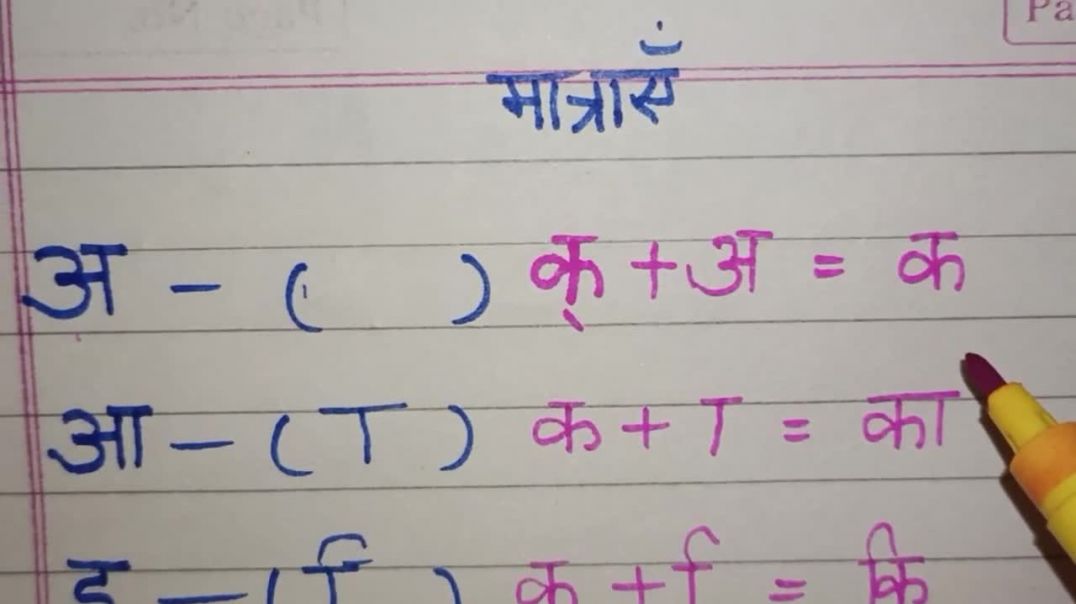 Pa
मात्राएँ
अ - ( ) क् + अ = क
आ - ( ा ) क + ा = का
इ - ( ि ) क + ि = कि